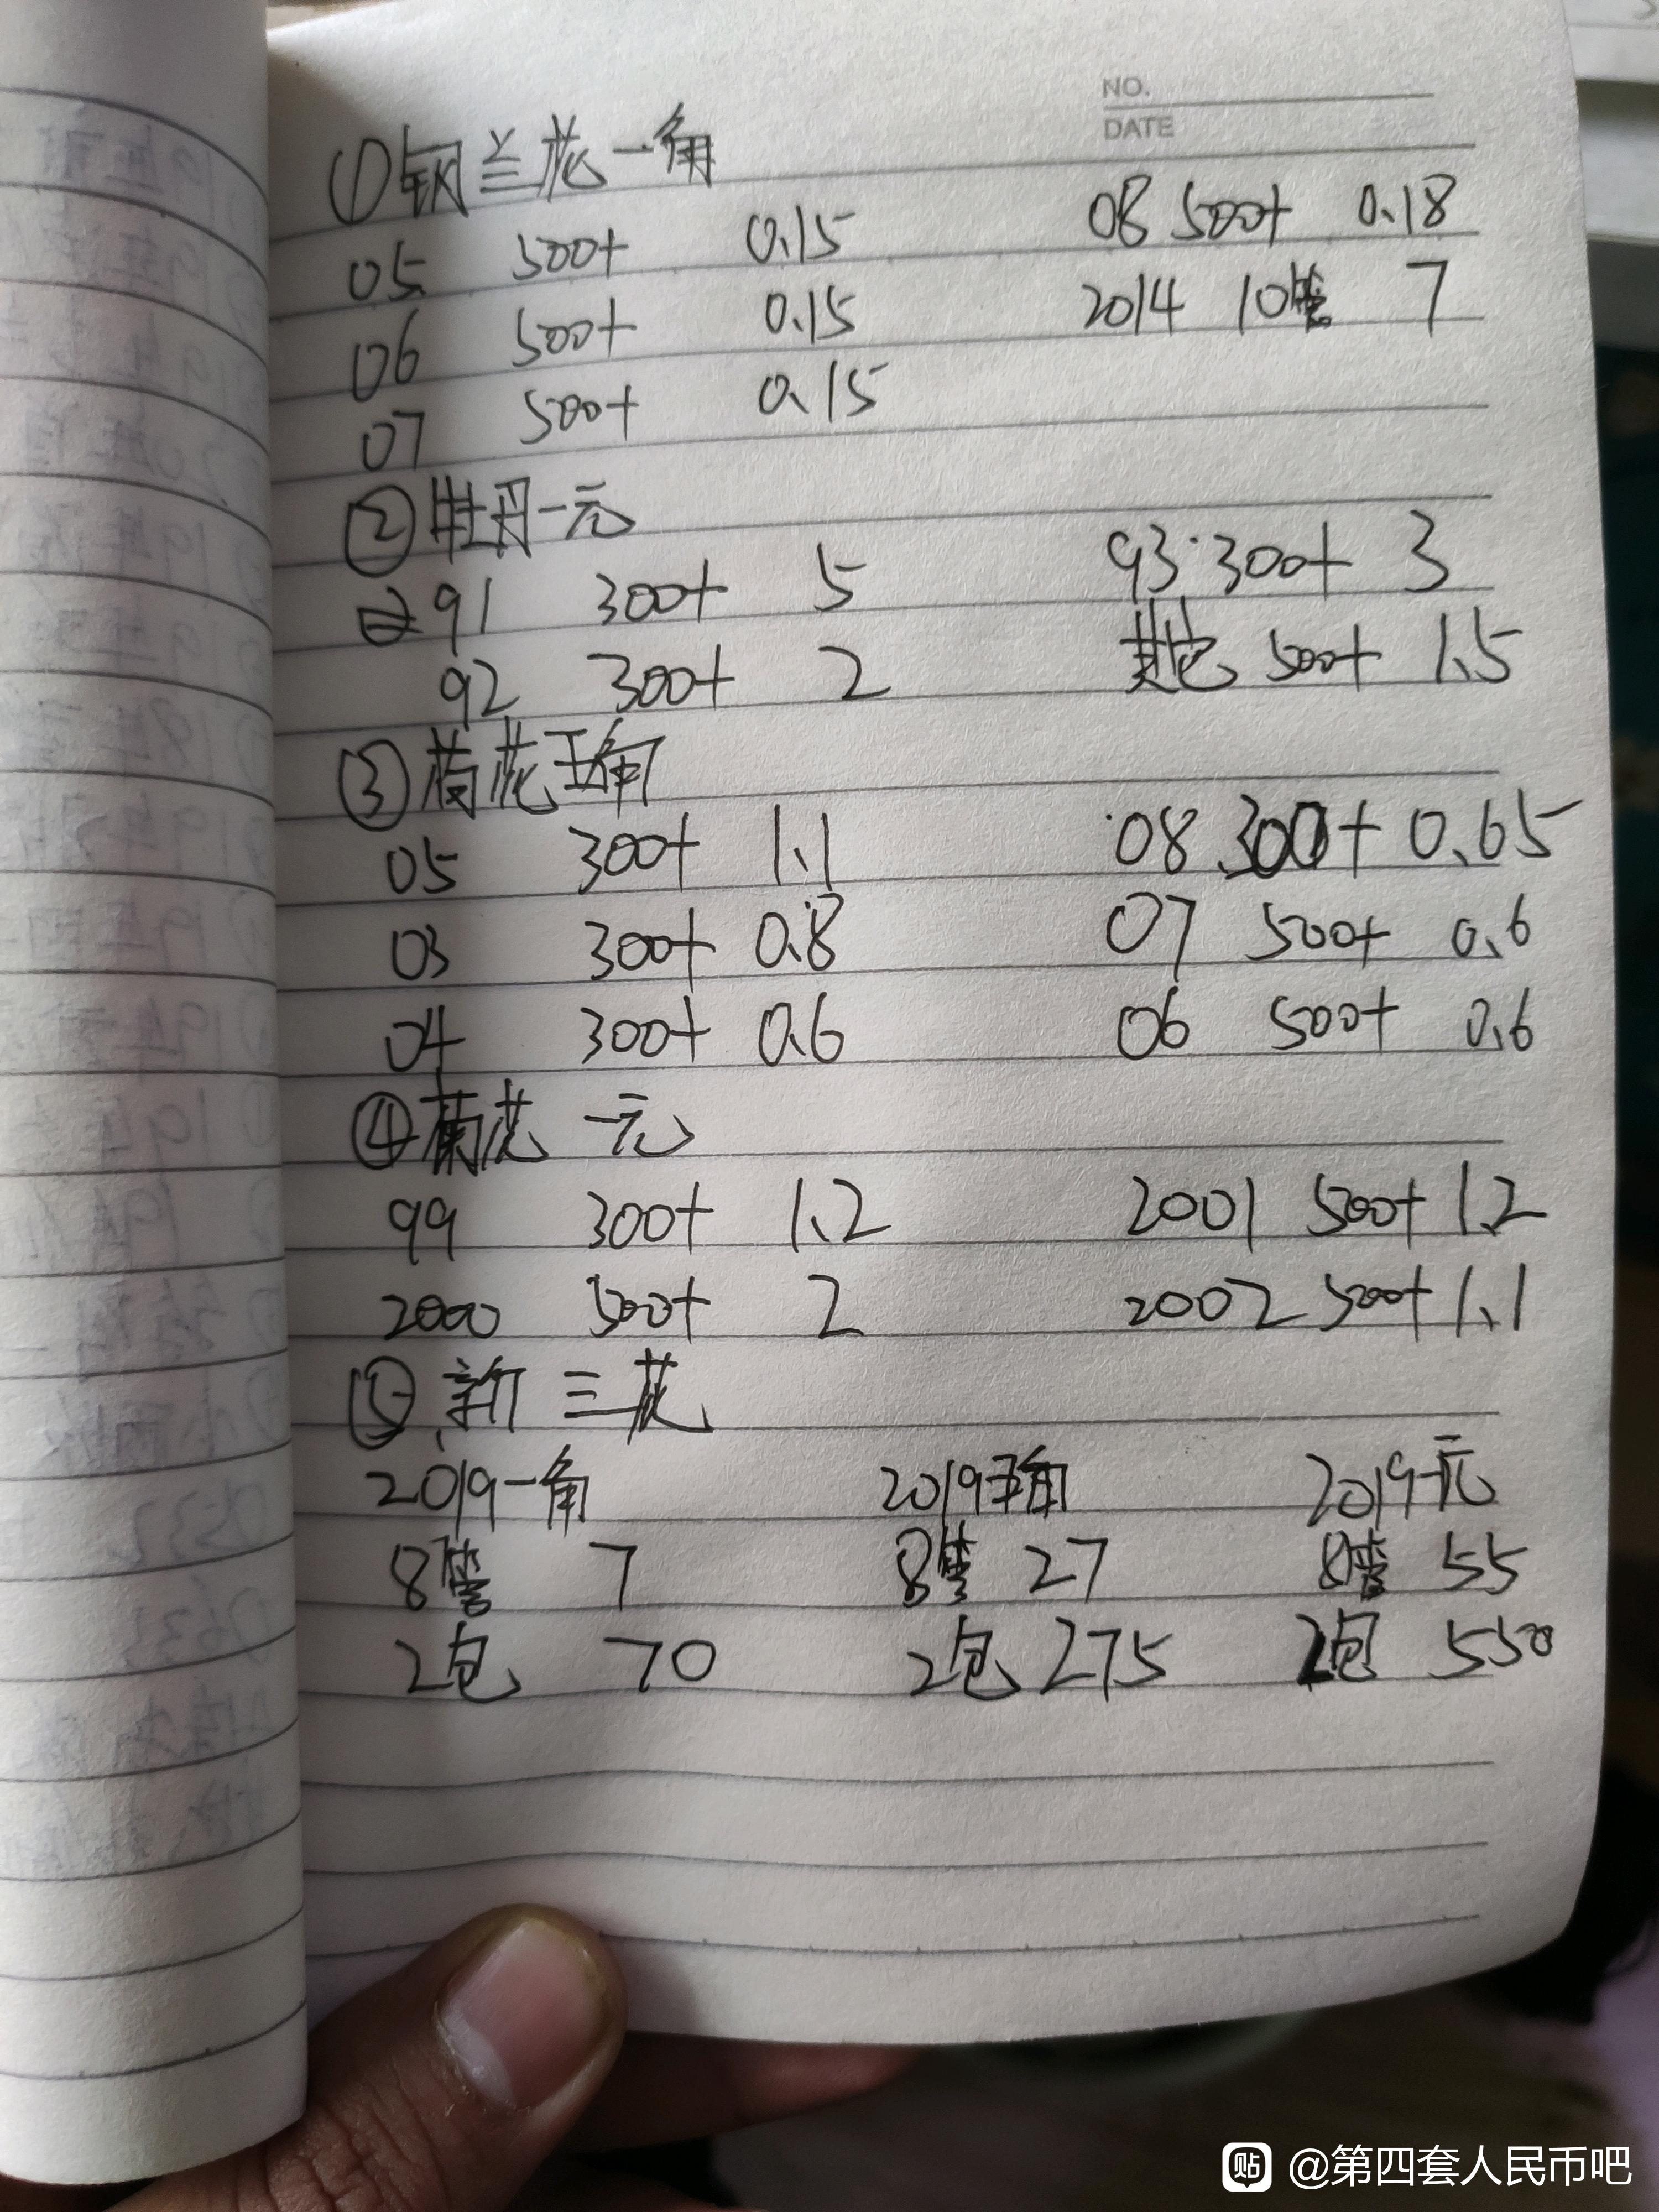 NO.
DATE
①钢兰花一角
05 500+ 0.15 08 500+ 0.18
06 500+ 0.15 2014 10管 7
07 500+ 0.15
②牡丹一元
91 300+ 5 93 300+ 3
92 300+ 2 其他 500+ 1.5
③荷花五角
05 300+ 1.1 08 300+ 0.65
03 300+ 0.8 07 500+ 0.6
04 300+ 0.6 06 500+ 0.6
④菊花 一元
99 300+ 1.2 2001 500+ 1.2
2000 500+ 2 2002 500+ 1.1
⑤新三花
2019一角 2019五角 2019一元
8管 7 8管 27 8管 55
2包 70 2包 275 2包 550
贴 @第四套人民币吧